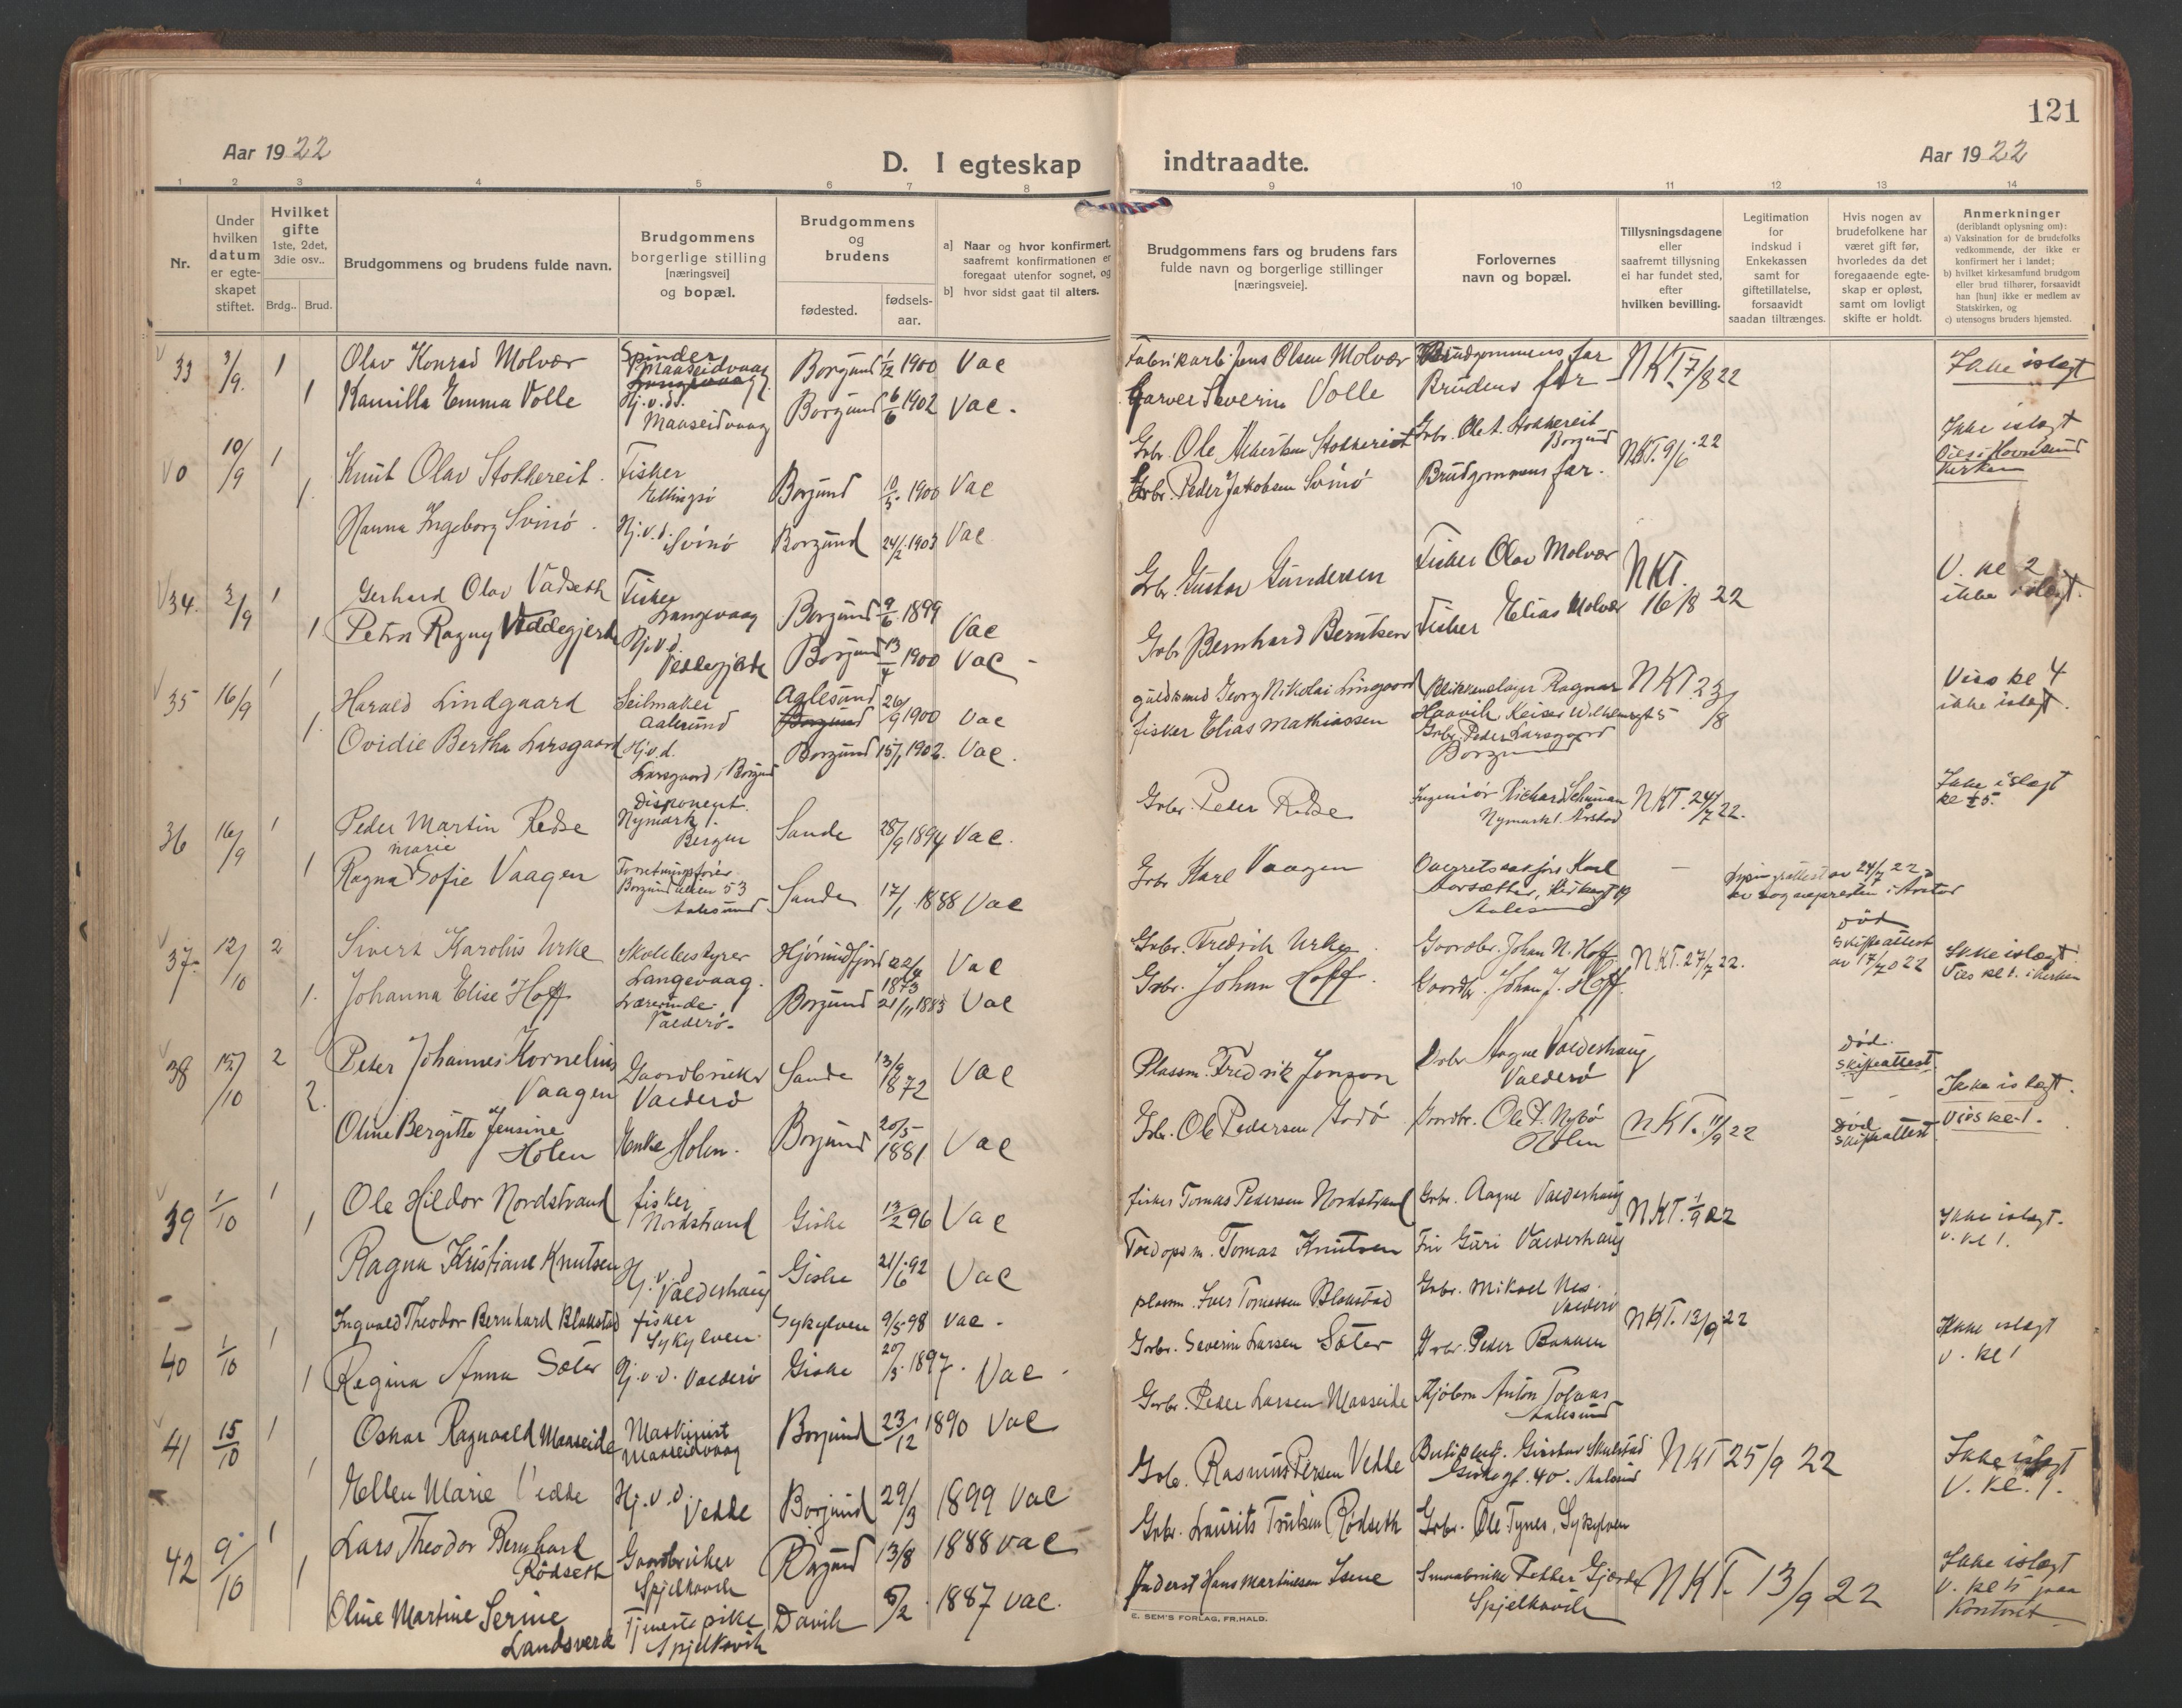 121
Aar 1922
D. I egteskap indtraadte.
Aar 1922
1 2 3 4 5 6 7 8 9 10 11 12 13 14
Nr.
Under hvilken datum er egteskapet stiftet.
Hvilket gifte 1ste, 2det, 3die osv..
Brdg.. Brud.
Brudgommens og brudens fulde navn.
Brudgommens borgerlige stilling [næringsvei] og bopæl.
Brudgommens og brudens
fødested.
fødsels-aar.
a] Naar og hvor konfirmert, saafremt konfirmationen er foregaat utenfor sognet, og
b] hvor sidst gaat til alters.
Brudgommens fars og brudens fars fulde navn og borgerlige stillinger [næringsveie].
Forlovernes navn og bopæl.
Tillysningsdagene eller saafremt tillysning ei har fundet sted, efter hvilken bevilling.
Legitimation for indskud i Enkekassen samt for giftetillatelse, forsaavidt saadan tiltrænges.
Hvis nogen av brudefolkene har været gift før, hvorledes da det foregaaende egteskap er opløst, samt om lovligt skifte er holdt.
Anmerkninger (deriblandt oplysning om):
a) Vaksination for de brudefolks vedkommende, der ikke er konfirmert her i landet;
b) hvilket kirkesamfund brudgom eller brud tilhører, forsaavidt han [hun] ikke er medlem av Statskirken, og
c) utensogns bruders hjemsted.
33 3/9. 1 Olav Konrad Molvær Spinder Maaseidvaag Borgund 1/2 1900 Vac Fabrikarb. Jens Olsen Molvær Brudgommens far NKT 7/8 22 Ikke islegt
1 Kamilla Emma Volle Hj.v.d. Maaseidvaag Borgund 6/6 1902 Vac. Garver Severin Volle Brudens far
0 10/9 1 Knut Olav Stokkereit. Fisker Ellingsø Borgund 10/5 1900 Vac Grbr. Ole Albertsen Stokkereit Grbr. Ole A. Stokkereit Borgund NKT. 9/6 22 Ikke islegt
Kirken
1. Hanna Ingeborg Svinö. Hj.v.d. Svinö Borgund 24/2 1903 Vac Grbr. Peder Jakobsen Svinö Brudgommens far.
34. 3/9 1 Gerhard Olav Vadseth Fisker Langevaag Borgund 9/6 1899 Vac Grbr. Gustav Gundersen Fisker Olav Molvær NKT. 16/8 22 V. kl 2 ikke islegt.
1 Petra Ragny Veddegjerde Hj.v.d. Veddegjerde Borgund 13/4 1900 Vac Grbr Bernhard Berntsen Fisker Elias Molvær
35 16/9 1 Harald Lindgaard Seilmaker Aalesund Aalesund 26/9 1900 Vac guldsmed Georg Nikolai Lingaard Blikkenslager Ragnar Haavik Keiser Wilhelmsgt 5 NKT. 23/8 Vies kl 4 ikke islegt.
1. Ovidie Bertha Larsgaard Hj.v.d. Larsgaard i Borgund Borgund 15/1 1902. Vac. fisker Elias Mathiassen Grbr. Peder Larsgaard Borgund
36 16/9 1 Peder Martin Redse disponent Nymark 1. Bergen Sande 28/9 1894 Vac. Grbr. Peder Redse Ingeniør Richard Schuman Nymark 1. Årstad NKT. 24/7 22. Ikke islegt kl 5.
1 Ragna Marie Sofie Vaagen Forretningsfører Borgundveien 53 Aalesund Sande 17/1 1888 Vac Grbr Karl Vaagen Overretssakfører Karl Aarsæther, Kirkegt 19 Aalesund
37. 12/10 2 Sivert Karolus Urke Skolebestyrer Langevaag. Hjørundfjord 22/4 1873 Vac Grbr. Fredrik Urke. Gaardbr. Johan N. Hoff NKT. 27/7 22. død Skifteattest av 17/7 22 Ikke islegt. Vies kl 1. i kirken
1. Johanna Elise Hoff Lærerinde Valderö. Borgund 21/11 1883 Vac Grbr. Johan Hoff. Gaardbr. Johan J. Hoff.
38 15/10 2 Peter Johannes Kornelius Vaagen Gaardbruker Valderö Sande 13/9 1872 Vac Plassm. Fredrik Jonson Grbr Aagne Valderhaug Valderö død. Skifteattest. Ikke islegt.
2. Oline Bergitte Jensine Holen Enke Holen. Borgund 20/5 1881 Vac Grbr. Ole Pedersen Gaardbr. Ole P. Nybø Holen NKT. 11/9 22 Død skifteattest Vies kl 1.
39 1/10 1 Ole Hildor Nordstrand fisker Nordstrand Giske 13/2 96 Vac fisker Tomas Pedersen Nordstrand Grbr. Aagne Valderhaug NKT. 1/9 22 Ikke islegt. v. kl 1.
1 Ragna Kristiane Knutsen Hj.v.d Valderhaug Giske 21/6 92 Vac Tomas Knutsen Fru Guri Valderhaug
40 1/10 1 Ingvald Theodor Bernhard Blakstad fisker Sykylven. Sykylven 9/5 98 Vac. plassm. Iver Tomassen Blakstad Grbr. Mikael Nes. Valderö NKT. 13/9 22 Ikke islegt v. kl 1
1 Regina Anna Sæter Hj.v.d. Valderö Giske 20/3 1897. Vac. Grbr. Severin Larsen Sæter Grbr. Peder Bakken
41 15/10 1 Oskar Ragnvald Maaseide Maskinist Maaseidvaag Borgund 23/12 1890 Vac Grbr. Peder Larsen Maaseide Kjøbm Anton Tolaas Aalesund
1 Ellen Marie Vedde Hj.v.d. Vedde Borgund 29/3 1899 Vac Grbr. Rasmus Persen Vedde Gustav Aalesund NKT 25/9 22 Ikke islegt V. kl. 1.
42 9/10 1 Lars Theodor Bernhard Rødseth Gaardbruker Spjelkavik Borgund 13/8 1888 Vac Grbr. Laurits Trulsen Rødseth Grbr. Ole Tynes, Sykylven
1 Oline Martine Serine Landsverk Tjenestepike Spjelkavik Davik 5/2. 1887 Vac. Inderst Hans Martinesen Isene Smaabruker Petter Gjærde Spjelkavik NKT. 13/9 22 Ikke islegt V. kl 5 paa Kontoret.
E. SEM'S FORLAG, FR.HALD.